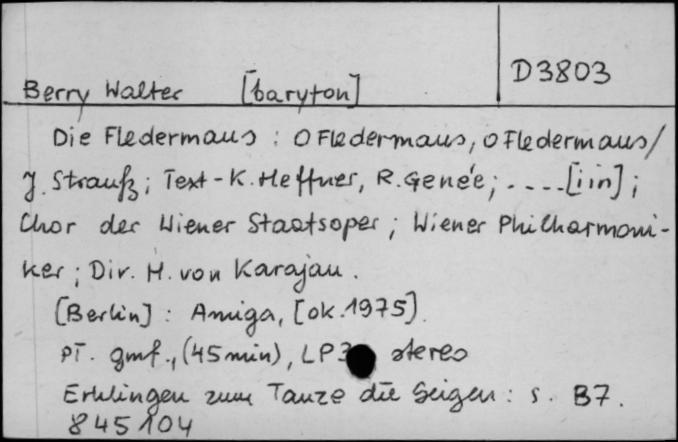 D3803
Berry Walter [baryton]
Die Fledermaus : O Fledermaus, O Fledermaus /
J. Strauß ; Text - K. Heffner, R. Genée ; .... [iin] ;
Chor der Wiener Staatsoper ; Wiener Philharmoni-
ker ; Dir. H. von Karajan.
[Berlin] : Amiga, [ok. 1975].
pł. gmf., (45 min), LP stereo
Erklingen zum Tanze die Geigen : s. B7.
845104